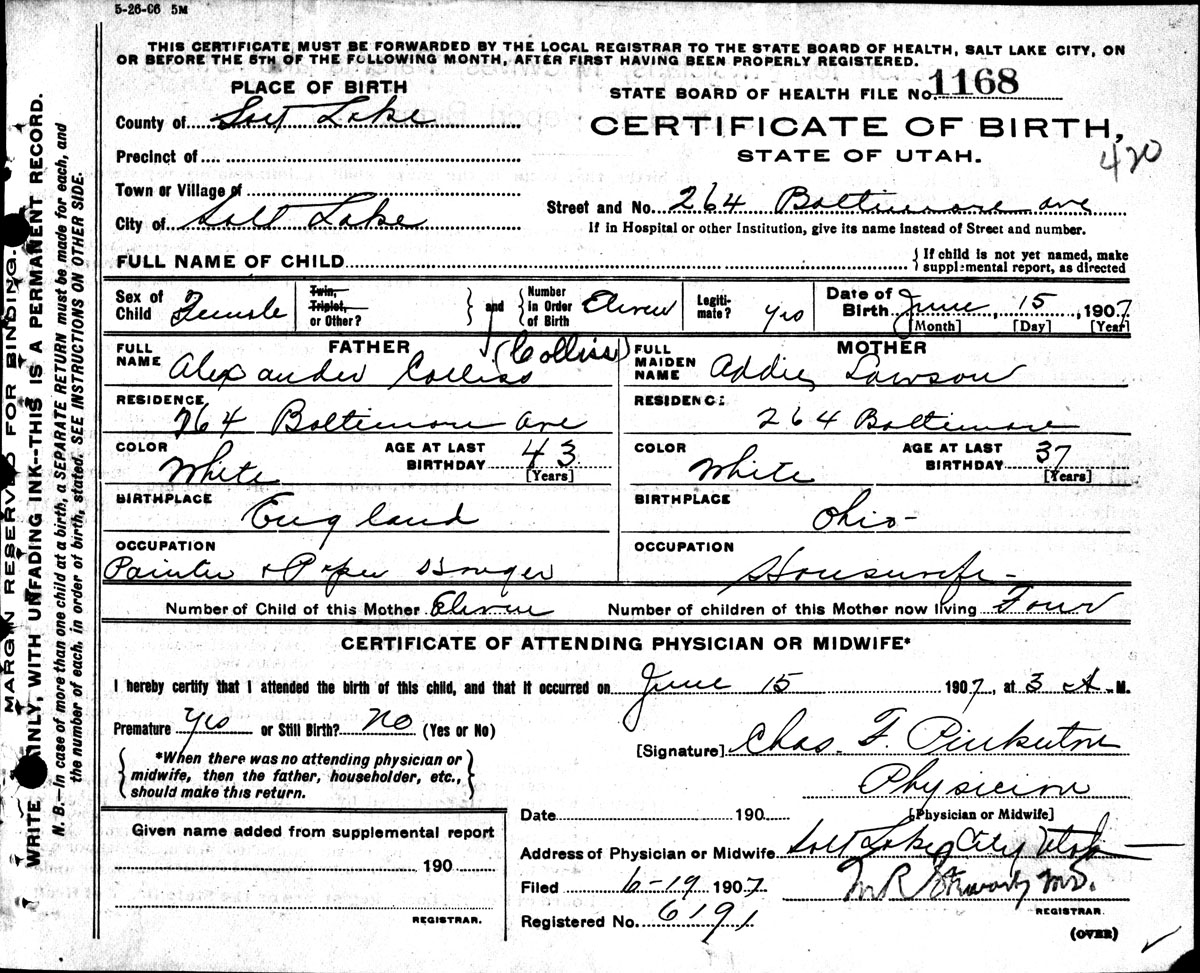 5-26-06 5M
THIS CERTIFICATE MUST BE FORWARDED BY THE LOCAL REGISTRAR TO THE STATE BOARD OF HEALTH, SALT LAKE CITY, ON
OR BEFORE THE 5TH OF THE FOLLOWING MONTH, AFTER FIRST HAVING BEEN PROPERLY REGISTERED.
PLACE OF BIRTH
STATE BOARD OF HEALTH FILE No. 1168
County of Salt Lake
CERTIFICATE OF BIRTH,
STATE OF UTAH.
420
Precinct of
Town or Village of
Street and No. 264 Baltimore ave
City of Salt Lake
If in Hospital or other Institution, give its name instead of Street and number.
FULL NAME OF CHILD
If child is not yet named, make
supplemental report, as directed
Sex of Child Female
Twin, Triplet, or Other?
and
Number in Order of Birth Eleven
Legitimate? yes
Date of Birth June 15, 1907
[Month] [Day] [Year]
FATHER
FULL NAME Alexander Colliss (Colliss)
MOTHER
FULL MAIDEN NAME Addie Lawson
RESIDENCE 264 Baltimore ave
RESIDENCE 264 Baltimore
COLOR White
AGE AT LAST BIRTHDAY 43 [Years]
COLOR White
AGE AT LAST BIRTHDAY 37 [Years]
BIRTHPLACE England
BIRTHPLACE Ohio-
OCCUPATION Painter & Paper Hanger
OCCUPATION Housewife-
Number of Child of this Mother Eleven
Number of children of this Mother now living Four
CERTIFICATE OF ATTENDING PHYSICIAN OR MIDWIFE*
I hereby certify that I attended the birth of this child, and that it occurred on June 15 1907, at 3 A.M.
Premature yes or Still Birth? no (Yes or No)
[Signature] Chas. F. Pinkerton
*When there was no attending physician or
midwife, then the father, householder, etc.,
should make this return.
Physician
[Physician or Midwife]
Date 190
Given name added from supplemental report
190
REGISTRAR.
Address of Physician or Midwife Salt Lake City Utah
Filed 6-19 1907
M R Stewart MD.
REGISTRAR
Registered No. 6191
(OVER)
MARGIN RESERVED FOR BINDING.
WRITE PLAINLY, WITH UNFADING INK--THIS IS A PERMANENT RECORD.
N. B.—In case of more than one child at a birth, a SEPARATE RETURN must be made for each, and
the number of each, in order of birth, stated. SEE INSTRUCTIONS ON OTHER SIDE.